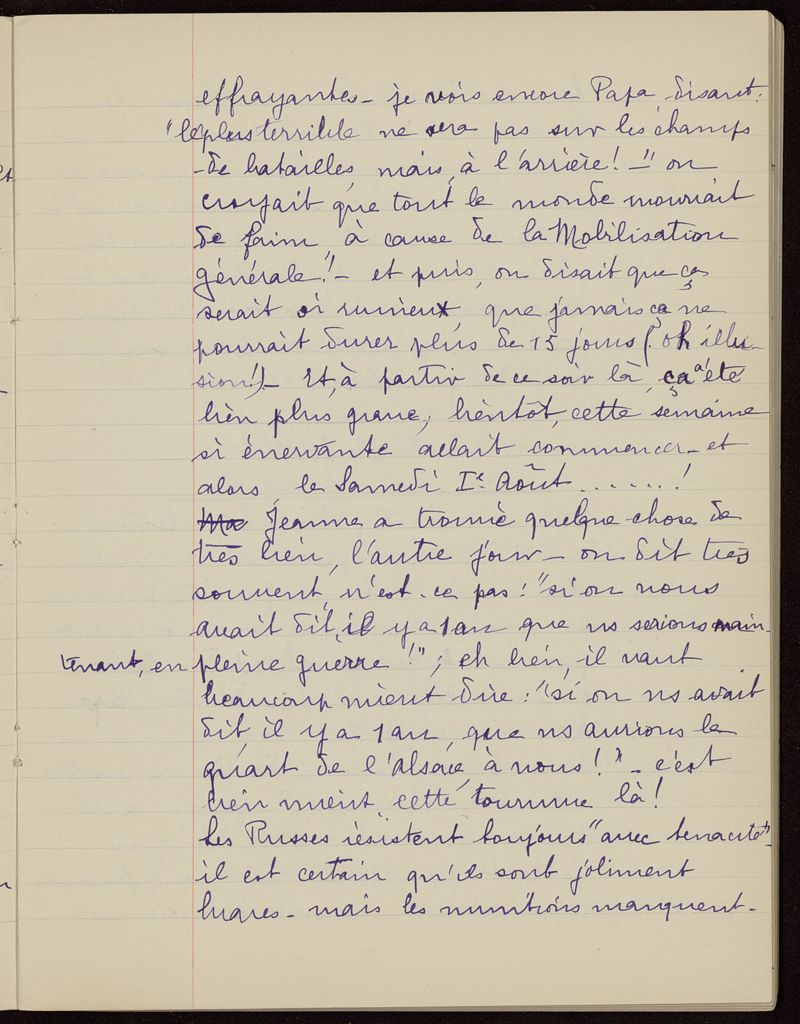 effrayantes - je vois encore Papa, disant:
"le plus terrible ne sera pas sur les champs
- de batailles, mais, à l'arrière! -" on
croyait que tout le monde mourrait
de faim, à cause de la Mobilisation
générale! - et puis, on disait que ça
serait si ruineux, que jamais ça ne
pourrait durer plus de 15 jours (oh illu-
sion!) - Et, à partir de ce soir là, ça a été
bien plus grave, bientôt, cette semaine
si énervante allait commencer - et
alors, le Samedi 1er Août ......!
Ma Jeanne a trouvé quelque chose de
très bien, l'autre jour - on dit très
souvent, n'est-ce pas: "si on nous
avait dit, il y a 1 an que ns serions main-
tenant, en pleine guerre!"; eh bien, il vaut
beaucoup mieux dire: "si on ns avait
dit, il y a 1 an, que ns aurions le
quart de l'Alsace, à nous!" - c'est
bien mieux, cette tournure là!
Les Russes résistent toujours "avec tenacité" -
il est certain qu'ils sont joliment
braves - mais les munitions manquent -